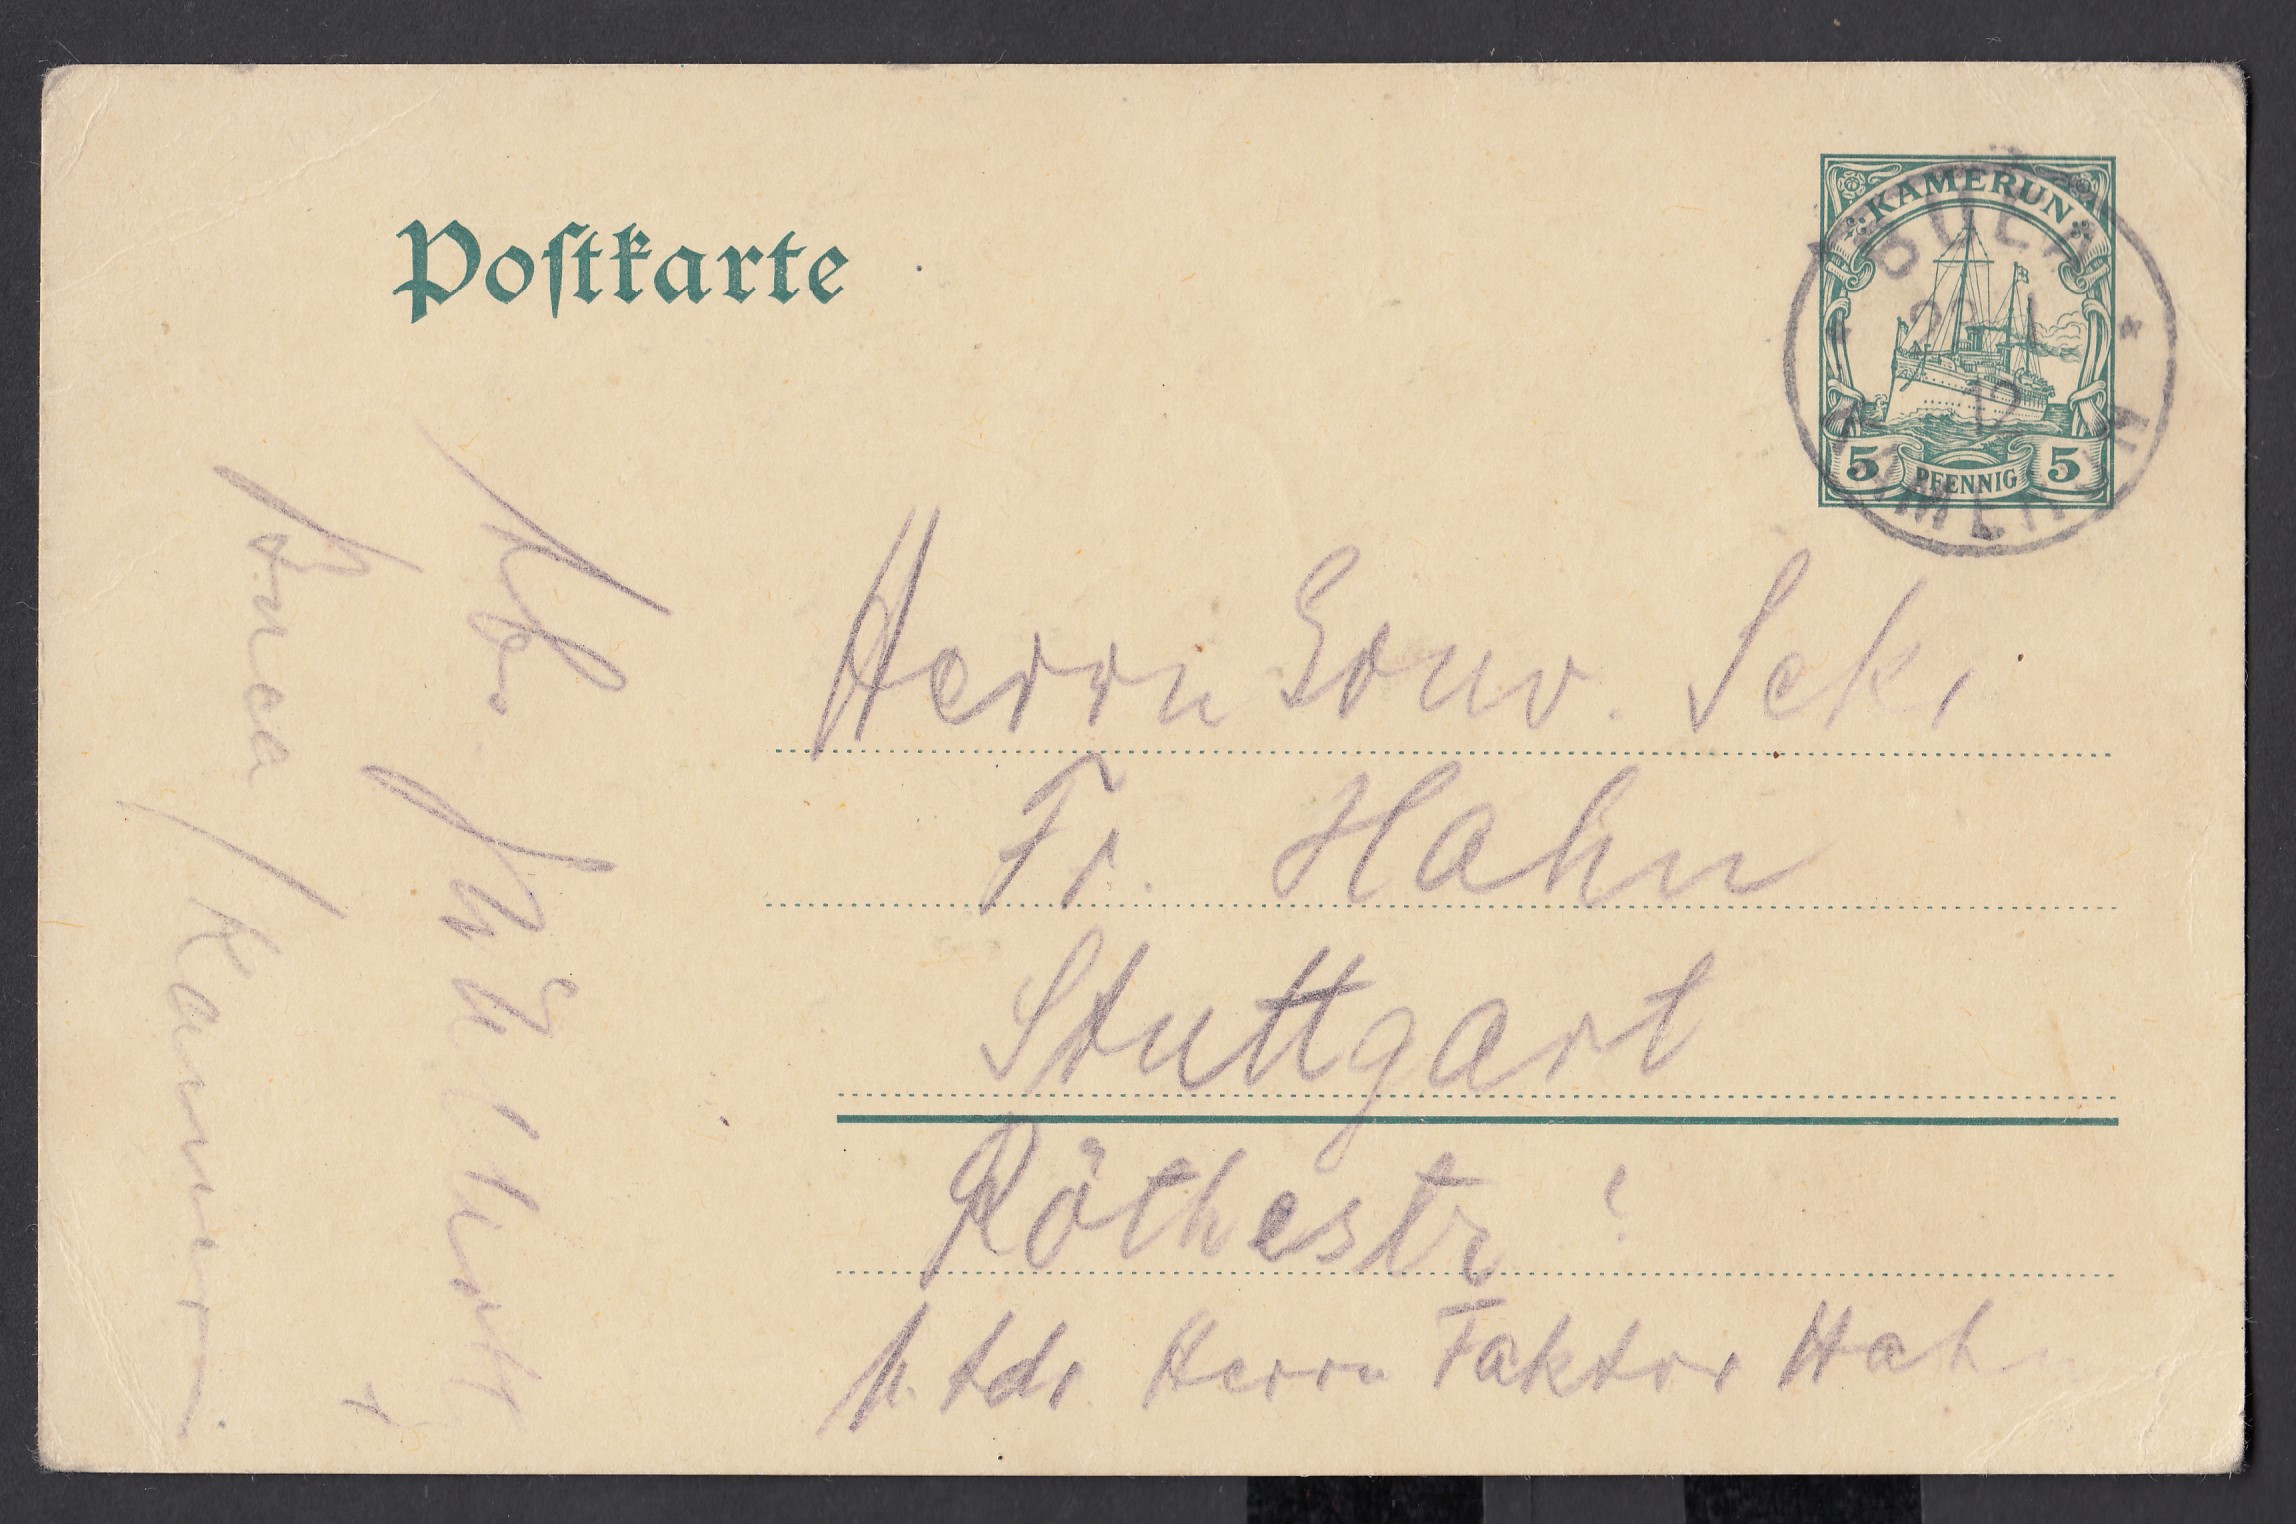 Postkarte
KAMERUN
BUEA
KAMERUN
5 PFENNIG 5
Herrn Gouv. Sekr
Fr. Hahn
Stuttgart
Röthestr ?
Herrn Faktor Hahn
Abs.
Buea / Kamerun